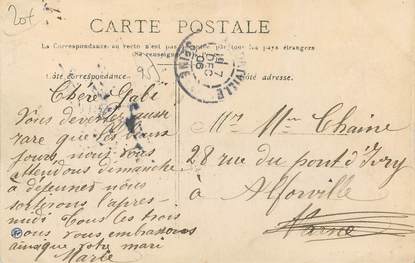 20f
CARTE POSTALE
La Correspondance au recto n'est pas acceptée par tous les pays étrangers
(Se renseigner
Côté correspondance.
Côté adresse.
17
DEC
06
SEINE
Chère Gabi
Vous devenez aussi
rare que les beaux
jours, nous vous
attendons dimanche
à déjeuner nous
sortirons l'apres-
midi Tous les trois
nous vous embrassons
ainsi que votre mari
Marie
Mr Mme Chaine
28 rue du pont d'Ivry
à Alforville